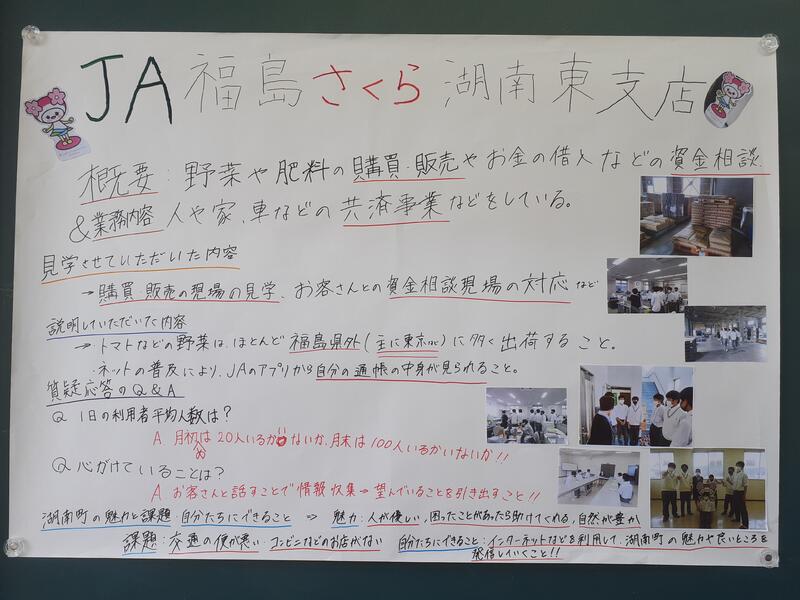 JA福島さくら 湖南東支店
概要&業務内容 : 野菜や肥料の購買・販売やお金の借入などの資金相談、
人や家、車などの共済事業などをしている。
見学させていただいた内容
→購買・販売の現場の見学、お客さんとの資金相談現場の対応など
説明していただいた内容
→・トマトなどの野菜は、ほとんど福島県外(主に東京etc)に多く出荷すること。
・ネットの普及により、JAのアプリから自分の通帳の中身が見られること。
質疑応答のQ&A
Q 1日の利用者平均人数は?
A 月初めは20人いるかいないか、月末は100人いるかいないか!!
Q 心がけていることは?
A お客さんと話すことで情報収集→望んでいることを引き出すこと!!
湖南町の魅力と課題・自分たちにできること ⇒ 魅力:人が優しい,困ったことがあったら助けてくれる,自然が豊か
課題:交通の便が悪い・コンビニなどのお店がない 自分たちにできること:インターネットなどを利用して、湖南町の魅力や良いところを
発信していくこと!!